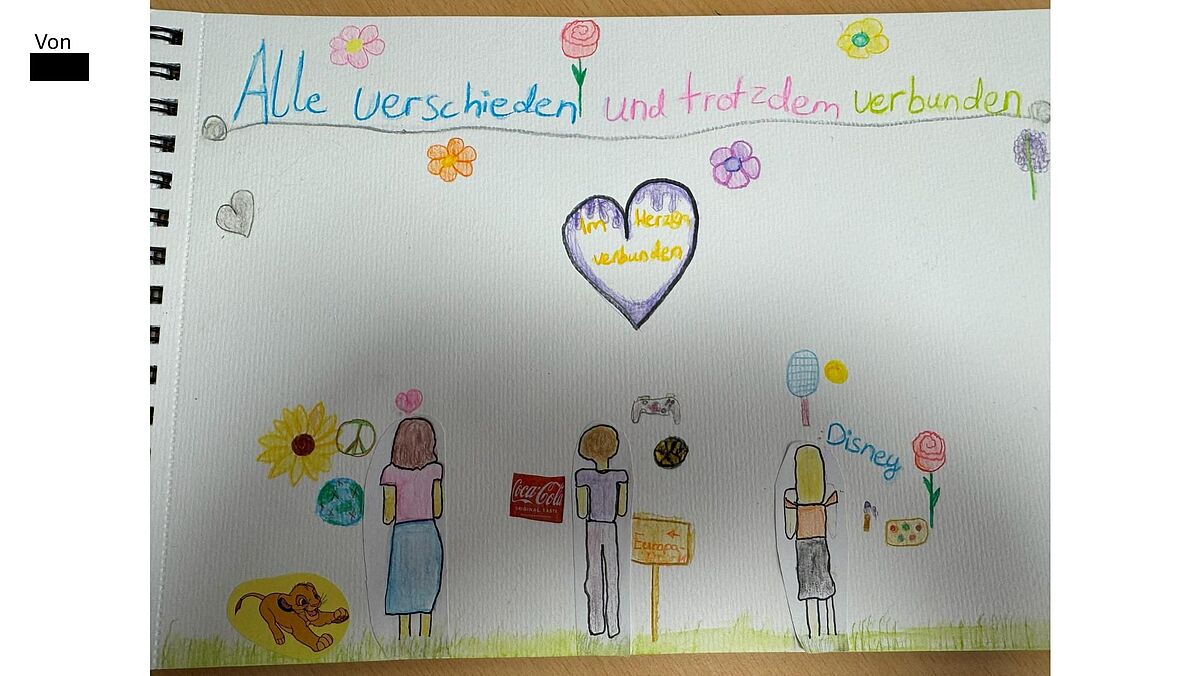 Von
Alle verschieden und trotzdem verbunden
Im Herzen
verbunden
Disney
Coca-Cola
ORIGINAL TASTE
Europa-